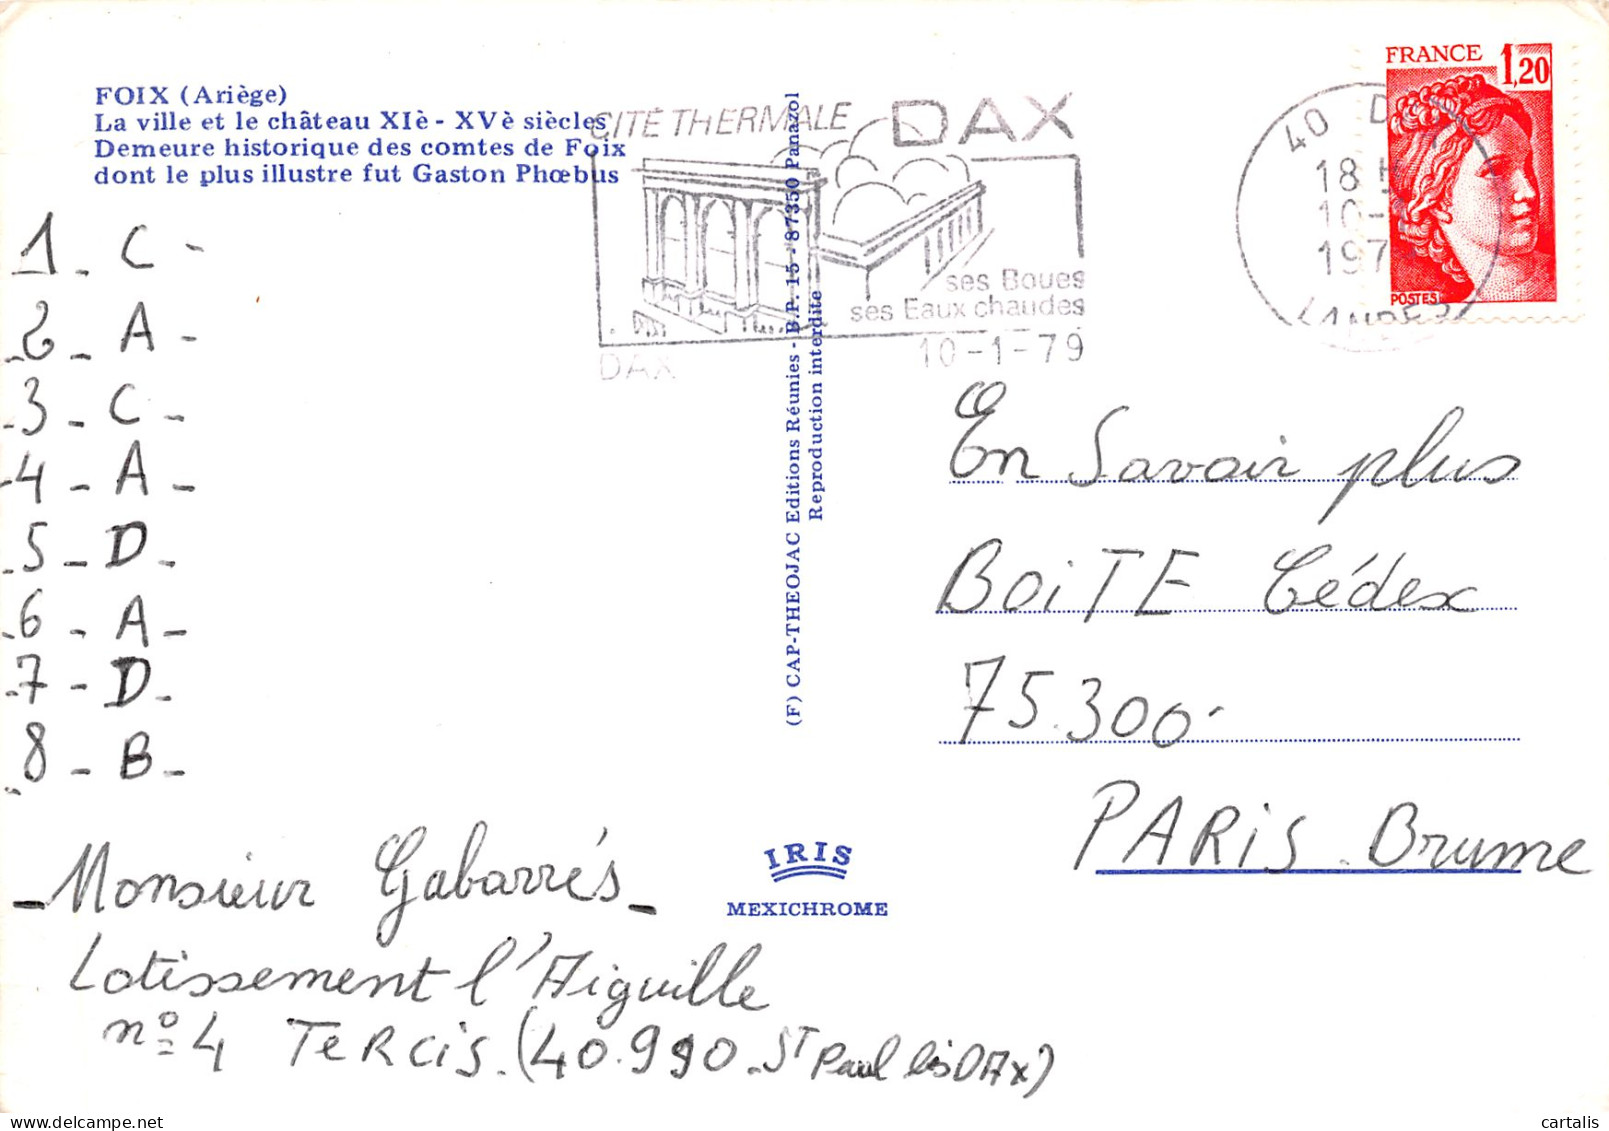 FOIX (Ariège)
La ville et le château XIè - XVè siècles
Demeure historique des comtes de Foix
dont le plus illustre fut Gaston Phœbus
CITÉ THERMALE DAX
ses Boues
ses Eaux chaudes
DAX 10-1-79
40 D
18 H
10-
197
LANDES
FRANCE 1,20
POSTES
1 - C -
- 2 - A -
- 3 - C -
- 4 - A -
- 5 - D -
- 6 - A -
- 7 - D -
- 8 - B -
- Monsieur Gabarrés -
Lotissement l'Aiguille
n° 4 TERCiS. (40.990 - ST Paul lès DAx)
(F) CAP-THEOJAC Editions Réunies - B.P. 15 - 87350 Panazol
Reproduction interdite
IRIS
MEXICHROME
En Savoir plus
BOiTE Cédex
75.300
PARiS - Brune
delcampe.net
cartalis